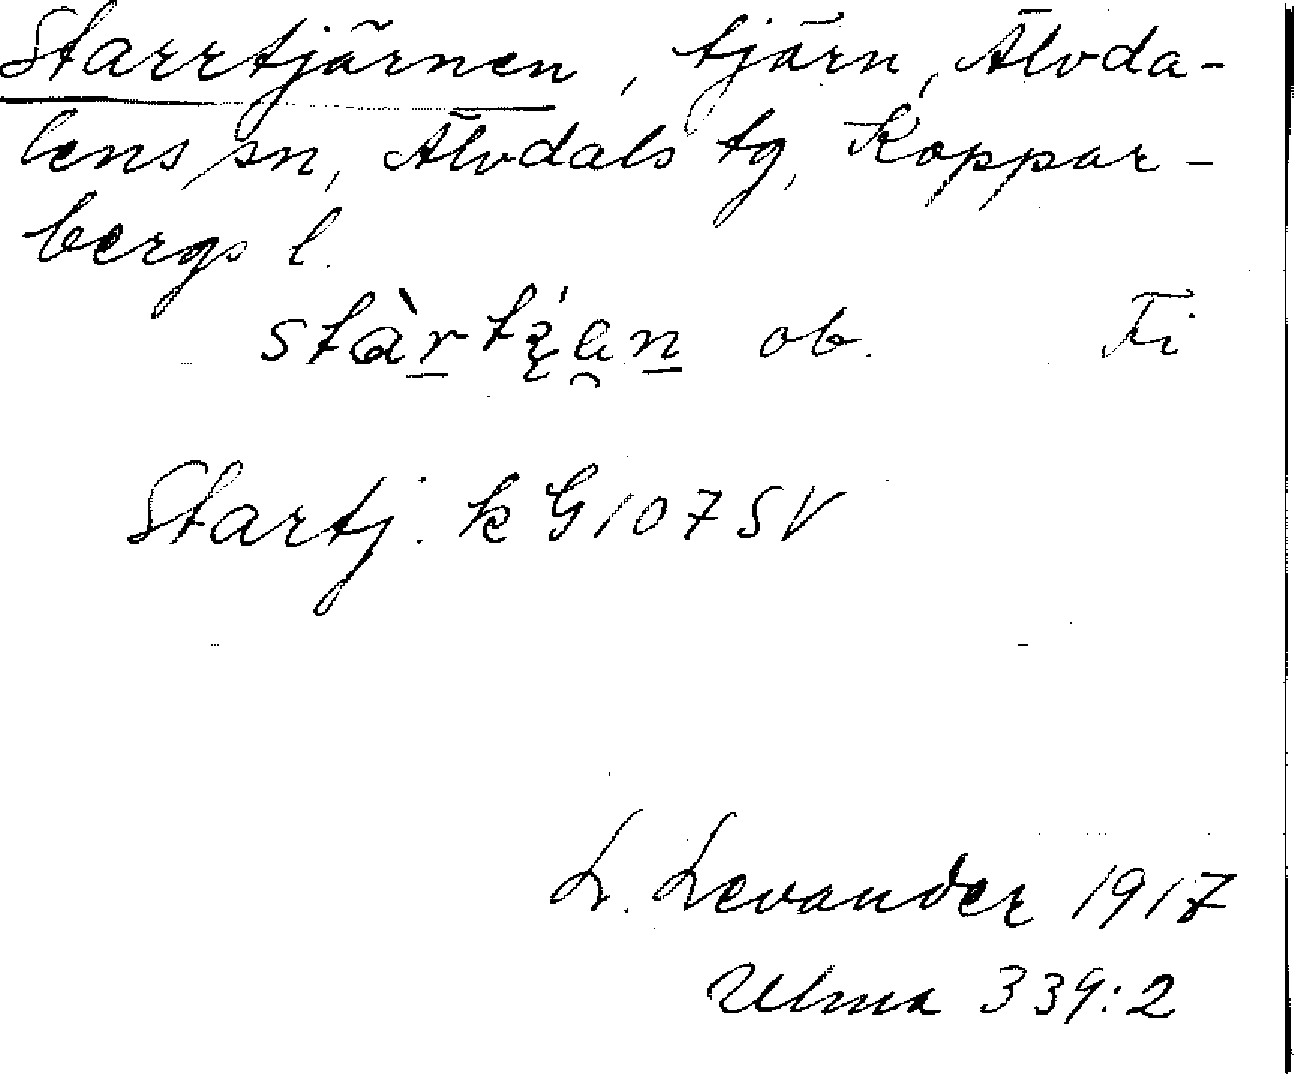 Starrtjärnen, tjärn, Älvda-
lens sn, Älvdals tg, Koppar-
bergs l.
ob. Fi
Startj. k G107SV
L. Levander 1917
Ulma 339:2